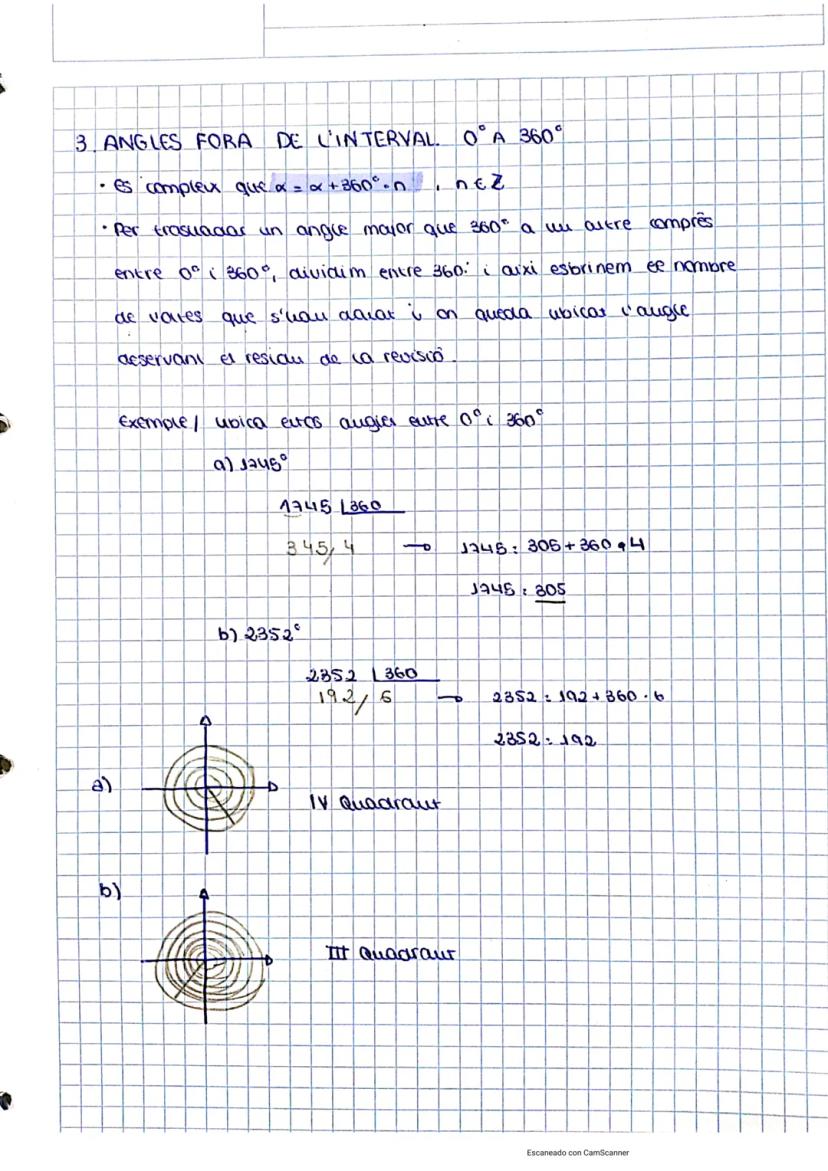 3. ANGLES FORA DE L'INTERVAL 0° A 360°
· Es compleix que α = α + 360° · n , n ∈ Z
· Per traslladar un angle major que 360° a un altre comprés
entre 0° i 360°, dividim entre 360: i així esbrinem el nombre
de voltes que s'han donat i on queda ubicat l'angle
observant el residu de la
Exemple/ ubica estos angles entre 0° i 360°
a) 1745°
1745 360
345, 4 → 1745 = 305 + 360 · 4
1745 = 305
b) 2352°
2352 360
192, 6 → 2352 = 192 + 360 · 6
2352 = 192
a)
IV Quadrant
b)
III Quadrant
Escaneado con CamScanner